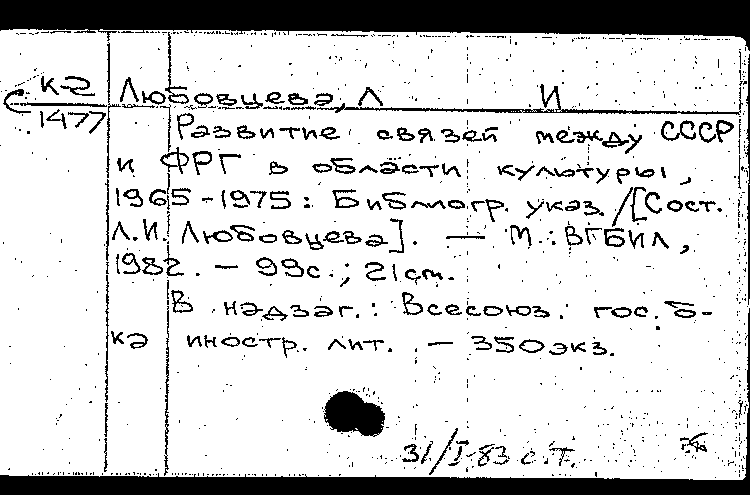 К-2
1477
Любовцева, Л И
Развитие связей между СССР
и ФРГ в области культуры,
1965-1975: Библиогр. указ. / [Сост.
Л.И. Любовцева]. — М.: ВГБИЛ,
1982. - 99с.; 21см.
В надзаг.: Всесоюз. гос. б-
ка иностр. лит. - 350экз.
31/I-83 с.т.